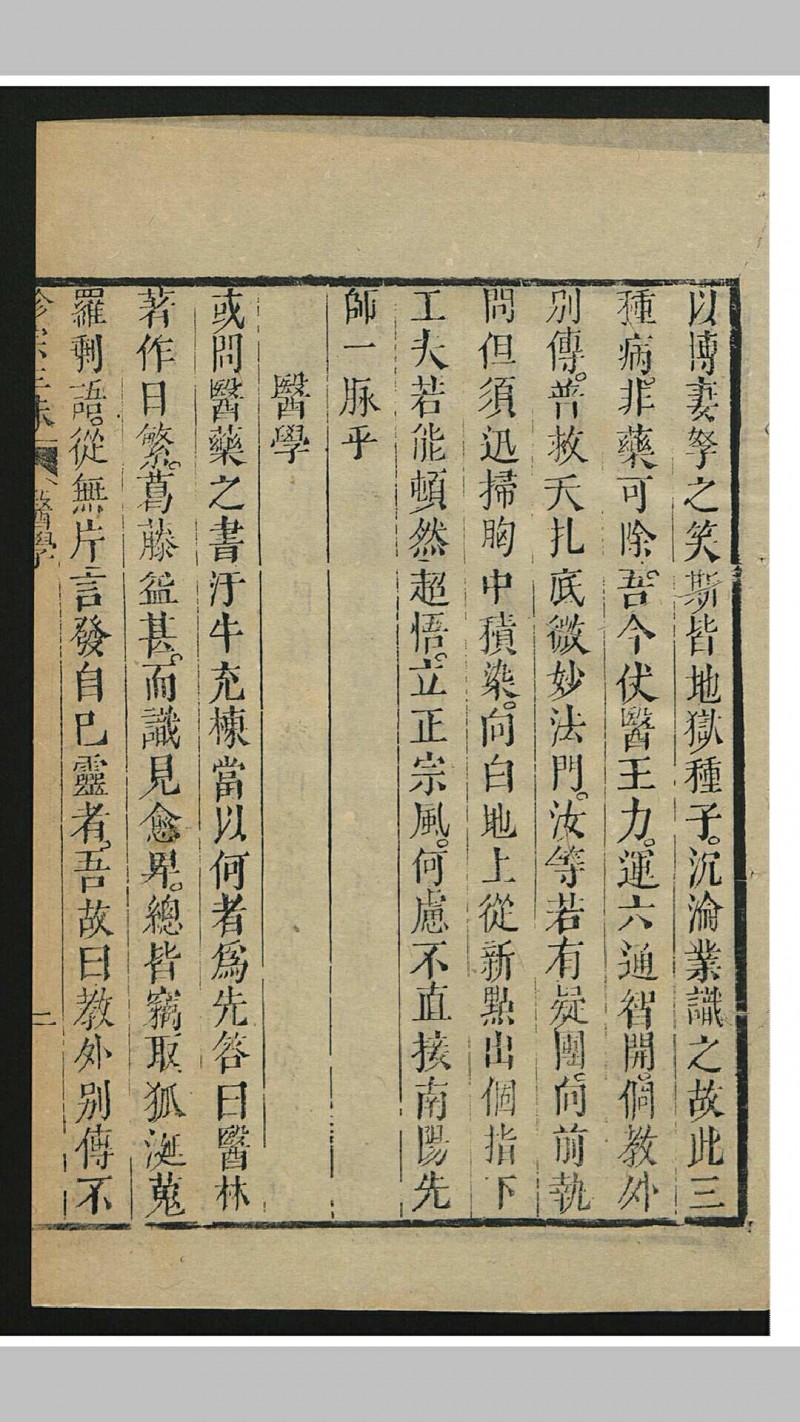 以博妻孥之笑斯皆地獄種子。沉淪業識之故此三
種病。非藥可除。吾今伏醫王力。運六通智開。個教外
別傳。普救夭扎底微妙法門。汝等若有疑團。向前執
問但須迅掃胸中積染。向白地上從新點出個指下
工夫若能頓然超悟。立正宗風。何慮不直接南陽先
師一脉乎
醫學
或問醫藥之書汗牛充棟當以何者爲先答曰醫林
著作日繁。葛藤益甚。而識見愈卑。總皆竊取狐涎蒐
羅剩語。從無片言發自己靈者。吾故曰教外別傳不
診宗三昧 醫學 二